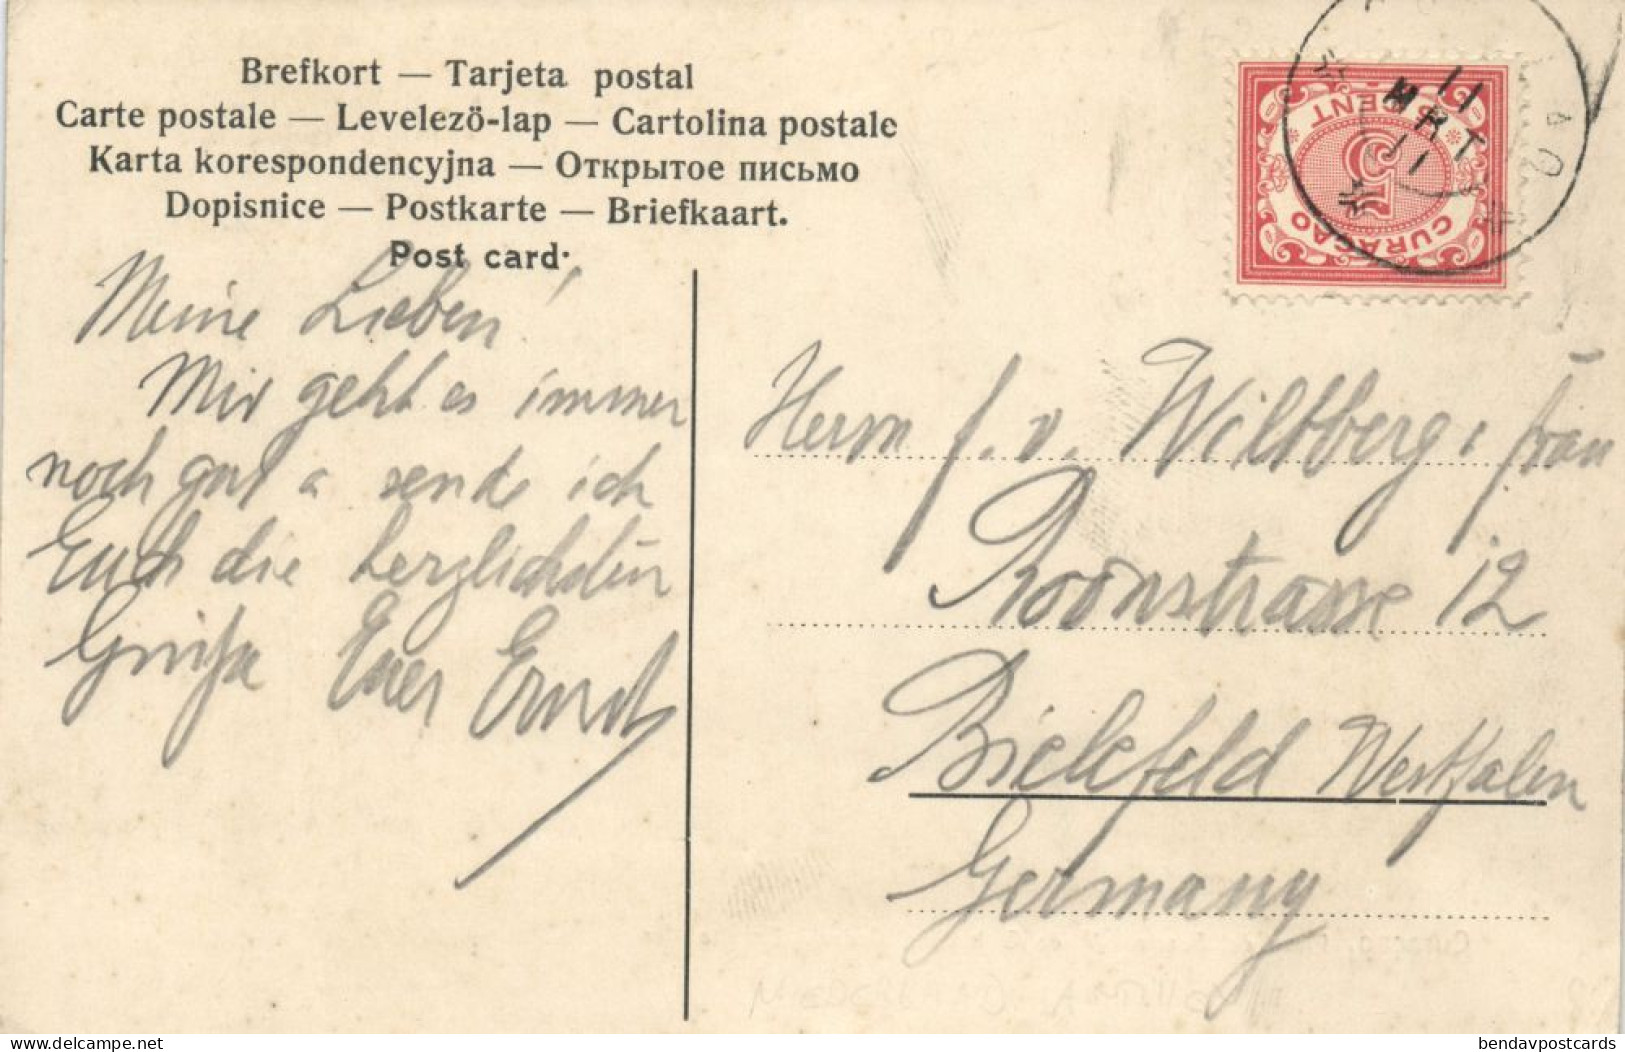 Brefkort — Tarjeta postal
Carte postale — Levelezö-lap — Cartolina postale
Karta korespondencyjna — Открытое письмо
Dopisnice — Postkarte — Briefkaart.
Post card
CURAÇAO
5
CENT
11
MRT
11
Meine Lieben!
Mir geht es immer
noch gut u sende ich
Euch die herzlichsten
Grüße Euer Ernst
Herrn f. v. Wiltberg u frau
Roonstrasse 12
Bielefeld Westfalen
Germany
Mein Webseite
bendavpostcards